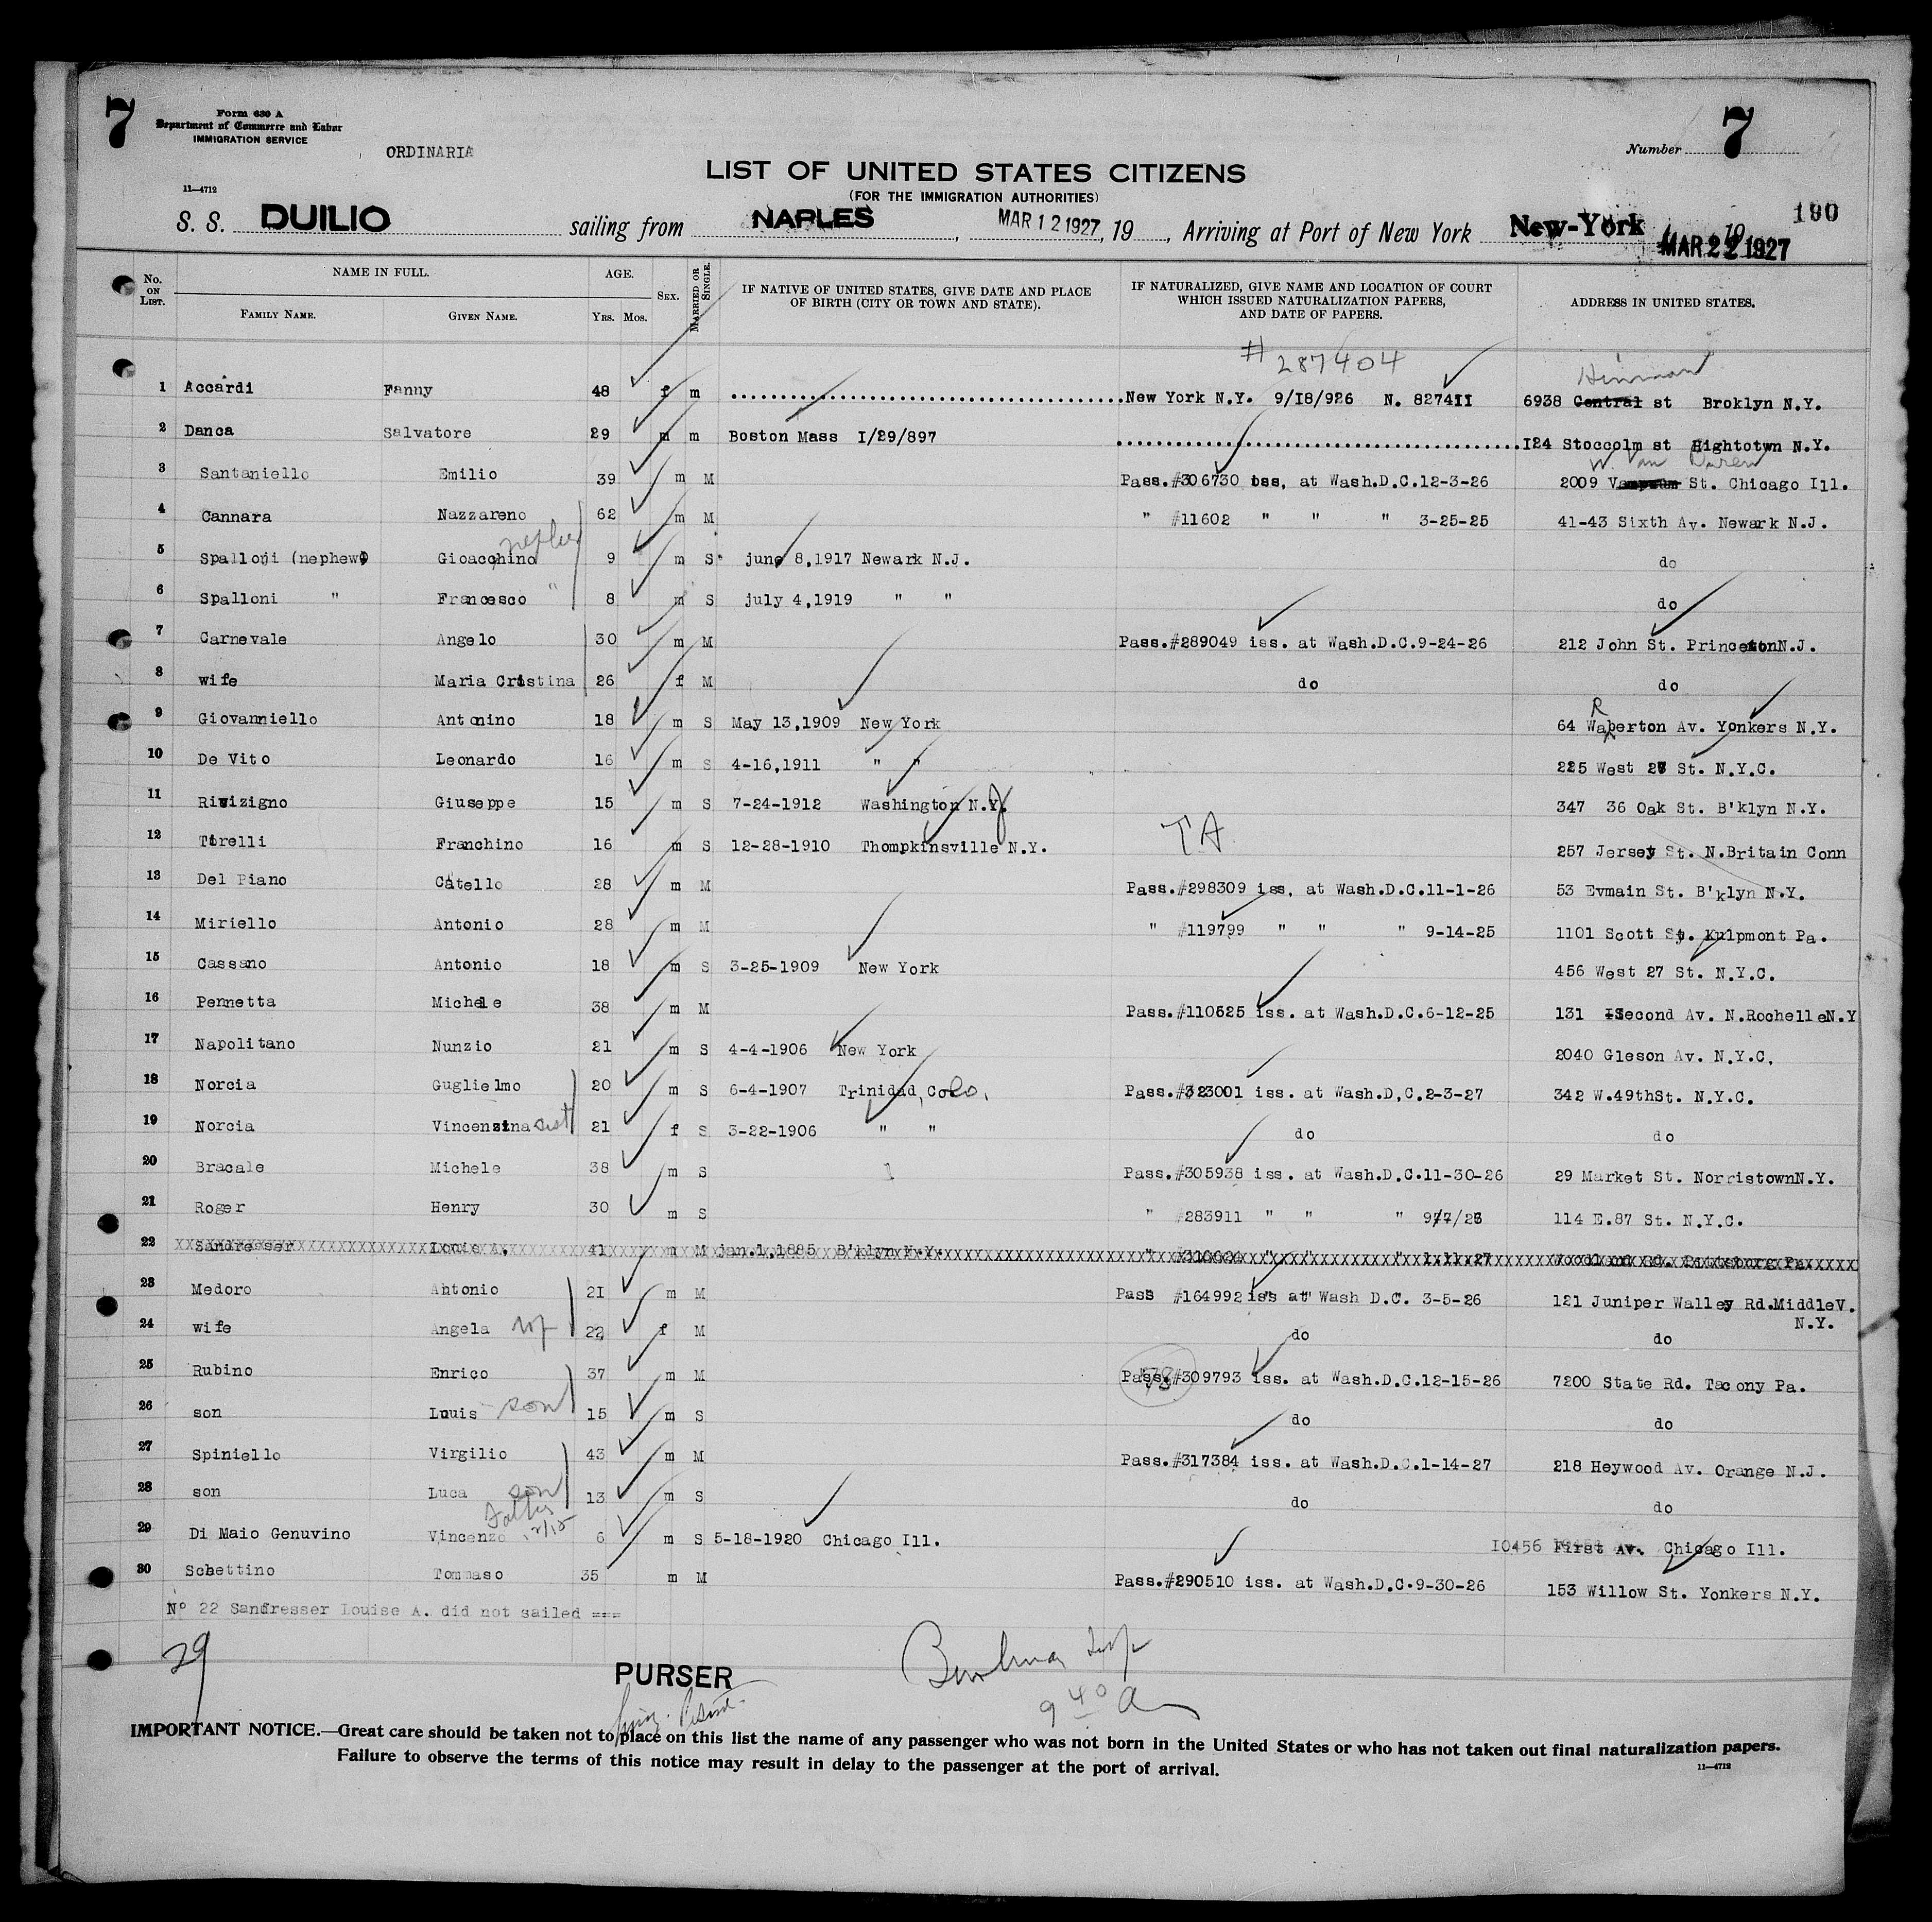 7
Form 630 A
Department of Commerce and Labor
IMMIGRATION SERVICE
ORDINARIA
Number 7
LIST OF UNITED STATES CITIZENS
(FOR THE IMMIGRATION AUTHORITIES)
11—4712
190
S. S. DUILIO sailing from NAPLES, MAR 12 1927, 19, Arriving at Port of New York New-York, 19
MAR 22 1927
No. ON LIST. NAME IN FULL. FAMILY NAME. GIVEN NAME. AGE. YRS. MOS. SEX. MARRIED OR SINGLE. IF NATIVE OF UNITED STATES, GIVE DATE AND PLACE OF BIRTH (CITY OR TOWN AND STATE). IF NATURALIZED, GIVE NAME AND LOCATION OF COURT WHICH ISSUED NATURALIZATION PAPERS, AND DATE OF PAPERS. ADDRESS IN UNITED STATES.
# 287404
Hinman
1 Accardi Fanny 48 f m New York N.Y. 9/I8/926 N. 8274II 6938 Central st Broklyn N.Y.
2 Danca Salvatore 29 m m Boston Mass I/29/897 I24 Stoccolm st Hightotwn N.Y.
W. Van Buren
3 Santaniello Emilio 39 m M Pass.#306730 iss. at Wash.D.C.12-3-26 2009 St. Chicago Ill.
4 Cannara Nazzareno 62 m M " #11602 " " " 3-25-25 41-43 Sixth Av. Newark N.J.
nephew
5 Spalloni (nephew) Gioacchino 9 m S june 8,1917 Newark N.J. do
6 Spalloni " Francesco " 8 m S july 4,1919 " " do
7 Carnevale Angelo 30 m M Pass.#289049 iss. at Wash.D.C.9-24-26 212 John St. Princeton N.J.
8 wife Maria Cristina 26 f M do do
R
9 Giovanniello Antonino 18 m S May 13,1909 New York 64 Waberton Av. Yonkers N.Y.
10 De Vito Leonardo 16 m S 4-16,1911 " " 225 West 28 St. N.Y.C.
11 Rivizigno Giuseppe 15 m S 7-24-1912 Washington N.Y. J 347 36 Oak St. B'klyn N.Y.
TA
12 Torelli Franchino 16 m S 12-28-1910 Thompkinsville N.Y. 257 Jersey St. N.Britain Conn
13 Del Piano Catello 28 m M Pass.#298309 iss. at Wash.D.C.11-1-26 53 Evmain St. B'klyn N.Y.
14 Miriello Antonio 28 m M " #119799 " " " 9-14-25 1101 Scott St. Kulpmont Pa.
15 Cassano Antonio 18 m S 3-25-1909 New York 456 West 27 St. N.Y.C.
16 Pennetta Michele 38 m M Pass.#110525 iss. at Wash.D.C.6-12-25 131 Second Av. N.Rochelle N.Y
17 Napolitano Nunzio 21 m S 4-4-1906 New York 2040 Gleson Av. N.Y.C.
18 Norcia Guglielmo 20 m S 6-4-1907 Trinidad, Colo. Pass.#323001 iss. at Wash.D.C.2-3-27 342 W.49thSt. N.Y.C.
19 Norcia Vincenzina sist 21 f S 3-22-1906 " " do do
20 Bracale Michele 38 m S Pass.#305938 iss. at Wash.D.C.11-30-26 29 Market St. NorristownN.Y.
21 Roger Henry 30 m S " #283911 " " " 9/7/26 114 E.87 St. N.Y.C.
22 Sandresser Louis A. 41 m M jan.1,1885 B'klyn N.Y. " " " " 1.11.27 Woodland Rd. Pittsburg Pa.
23 Medoro Antonio 21 m M Pass #164992 iss at Wash D.C. 3-5-26 121 Juniper Walley Rd.MiddleV.
N.Y.
24 wife Angela wf 22 f M do do
25 Rubino Enrico 37 m M Pass.#309793 iss. at Wash.D.C.12-15-26 7200 State Rd. Tacony Pa.
26 son Louis son 15 m S do do
27 Spiniello Virgilio 43 m M Pass.#317384 iss. at Wash.D.C.1-14-27 218 Heywood Av. Orange N.J.
28 son Luca son 13 m S do do
Father
29 Di Maio Genuvino Vincenzo 6 m S 5-18-1920 Chicago Ill. I0456 First Av. Chicago Ill.
30 Schettino Tommaso 35 m M Pass.#290510 iss. at Wash.D.C.9-30-26 153 Willow St. Yonkers N.Y.
Nº 22 Sandresser Louise A. did not sailed ===
29
PURSER
9 40 A
IMPORTANT NOTICE.—Great care should be taken not to place on this list the name of any passenger who was not born in the United States or who has not taken out final naturalization papers.
Failure to observe the terms of this notice may result in delay to the passenger at the port of arrival.
11—4712